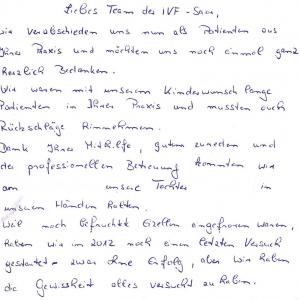 Liebes Team der IVF-Saar,
wir verabschieden uns nun als Patienten aus
Ihrer Praxis und möchten uns noch einmal ganz
herzlich bedanken.
Wir waren mit unserem Kinderwunsch lange
Patienten in Ihrer Praxis und mussten auch
Rückschläge hinnehmen.
Dank Ihrer Mithilfe, gutem zureden und
der professionellen Betreuung konnten wir
am unsere Tochter in
unseren Händen halten.
Weil noch befruchtete Eizellen eingefroren waren,
haben wir in 2012 noch einen letzten Versuch
gestartet - zwar ohne Erfolg, aber wir haben
die Gewissheit alles versucht zu haben.